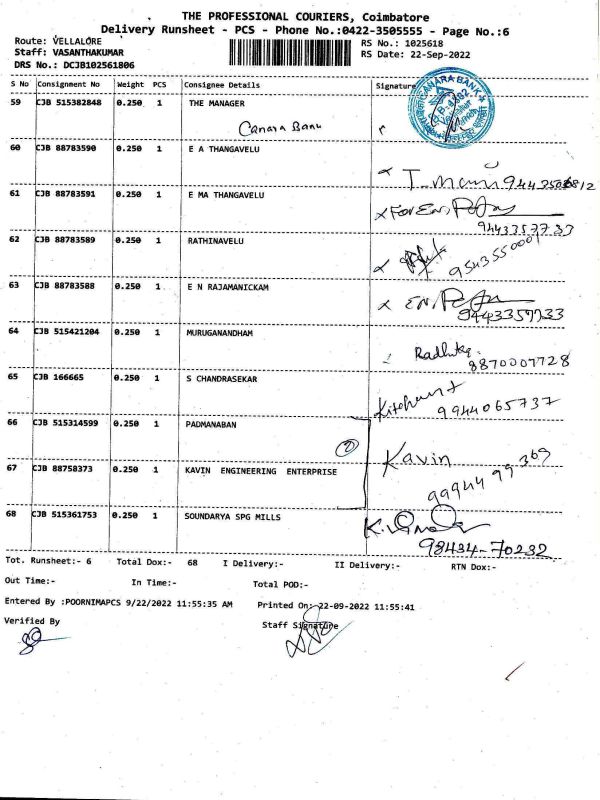 THE PROFESSIONAL COURIERS, Coimbatore
Delivery Runsheet - PCS - Phone No.:0422-3505555 - Page No.:6
Route: VELLALORE
Staff: VASANTHAKUMAR
DRS No.: DCJB102561806
RS No.: 1025618
RS Date: 22-Sep-2022
S No Consignment No Weight PCS Consignee Details Signature
59 CJB 515382848 0.250 1 THE MANAGER
Canara Bank
CANARA BANK
60 CJB 88783590 0.250 1 E A THANGAVELU
61 CJB 88783591 0.250 1 E MA THANGAVELU
9443357733
62 CJB 88783589 0.250 1 RATHINAVELU
9543550001
63 CJB 88783588 0.250 1 E N RAJAMANICKAM
9443357733
64 CJB 515421204 0.250 1 MURUGANANDHAM
8870007728
65 CJB 166665 0.250 1 S CHANDRASEKAR
9944065737
66 CJB 515314599 0.250 1 PADMANABAN
2
67 CJB 88758373 0.250 1 KAVIN ENGINEERING ENTERPRISE
Kavin
9994499369
68 CJB 515361753 0.250 1 SOUNDARYA SPG MILLS
98434-70232
Tot. Runsheet:- 6 Total Dox:- 68 I Delivery:- II Delivery:- RTN Dox:-
Out Time:- In Time:- Total POD:-
Entered By :POORNIMAPCS 9/22/2022 11:55:35 AM Printed On: 22-09-2022 11:55:41
Verified By Staff Signature